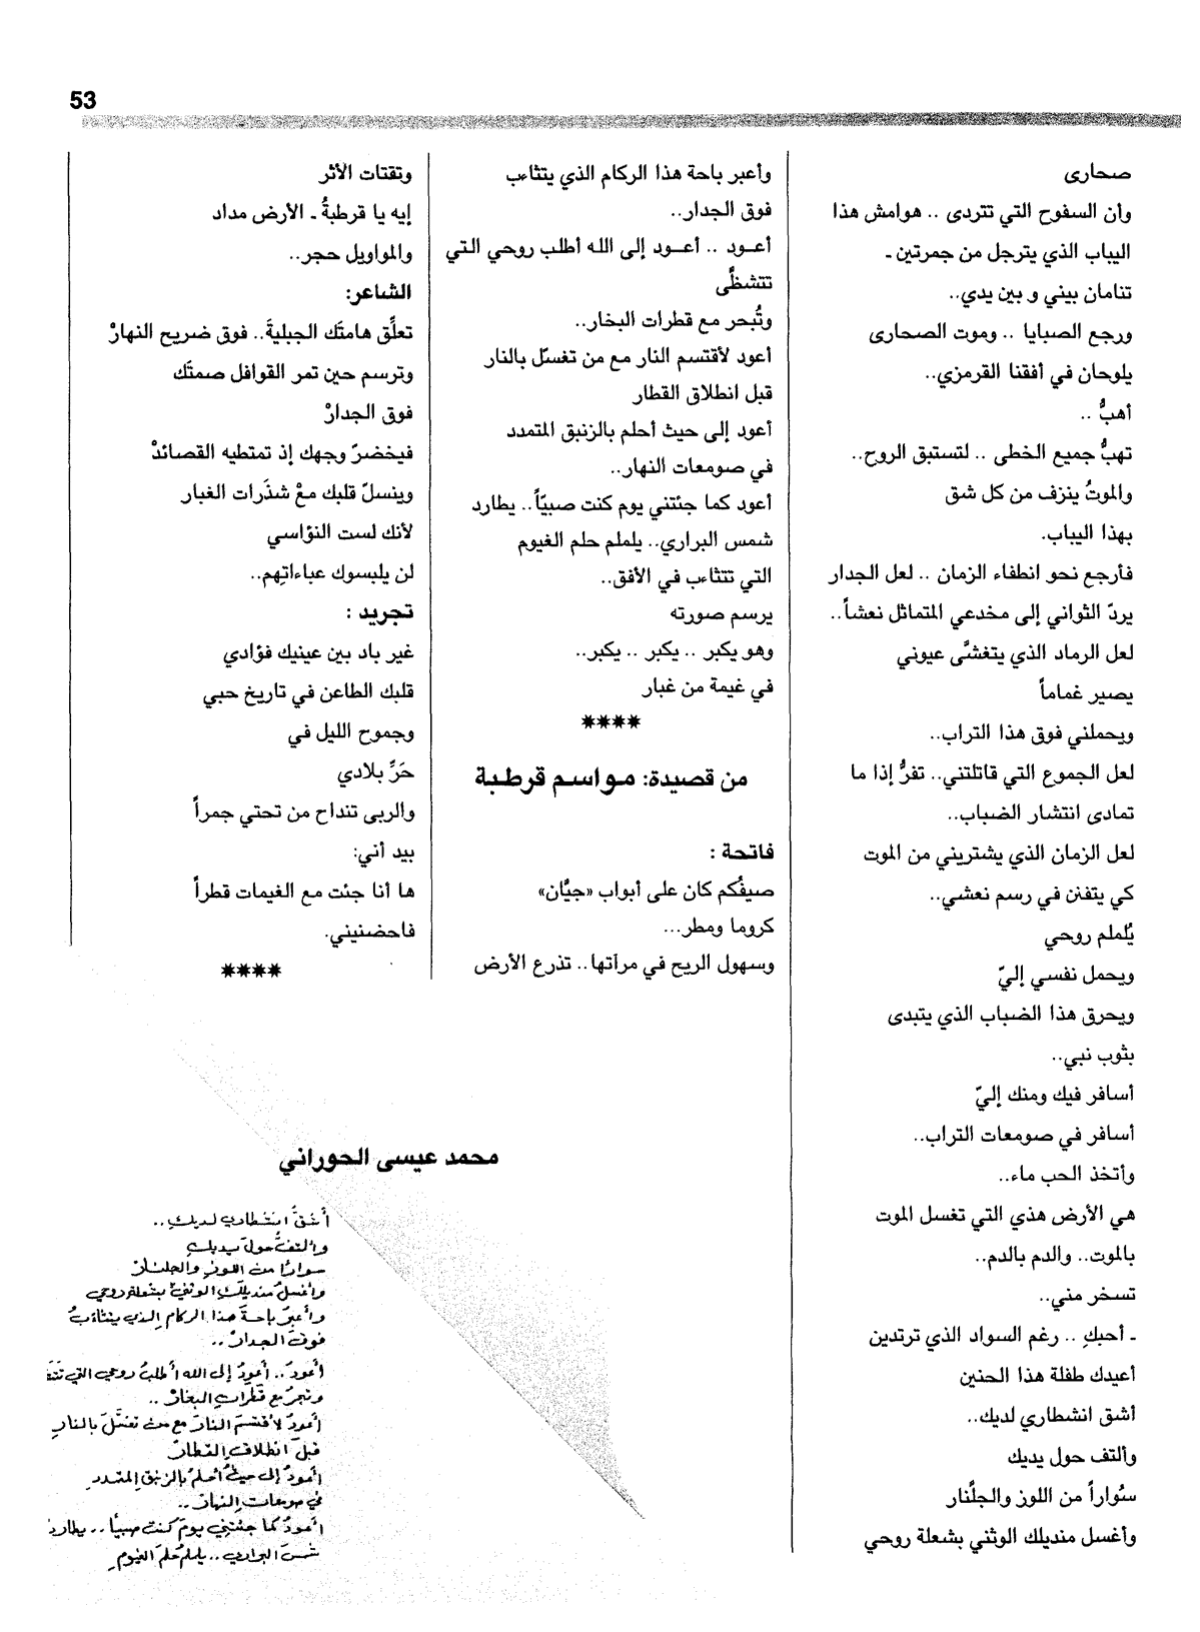 53
صحارى
وأن السفوح التي تتردى .. هوامش هذا
اليباب الذي يترجل من جمرتين ـ
تنامان بيني و بين يدي..
ورجع الصبايا .. وموت الصحارى
يلوحان في أفقنا القرمزي..
أهبُّ ..
تهبُّ جميع الخطى .. لتستبق الروح..
والموتُ ينزف من كل شق
بهذا اليباب.
فأرجع نحو انطفاء الزمان .. لعل الجدار
يردّ الثواني إلى مخدعي المتماثل نعشاً..
لعل الرماد الذي يتغشَّى عيوني
يصير غماماً
ويحملني فوق هذا التراب..
لعل الجموع التي قاتلتني.. تفرُّ إذا ما
تمادى انتشار الضباب..
لعل الزمان الذي يشتريني من الموت
كي يتفنن في رسم نعشي..
يُلملم روحي
ويحمل نفسي إليّ
ويحرق هذا الضباب الذي يتبدى
بثوب نبي..
أسافر فيك ومنك إليّ
أسافر في صومعات التراب..
وأتخذ الحب ماء..
هي الأرض هذي التي تغسل الموت
بالموت.. والدم بالدم..
تسخر مني..
ـ أحبكِ .. رغم السواد الذي ترتدين
أعيدك طفلة هذا الحنين
أشق انشطاري لديك..
وألتف حول يديك
سُواراً من اللوز والجلَّنار
وأغسل منديلك الوثني بشعلة روحي
وأعبر باحة هذا الركام الذي يتثاءب
فوق الجدار..
أعـود .. أعـود إلى الله أطلب روحي التي
تتشظَّى
وتُبحر مع قطرات البخار..
أعود لأقتسم النار مع من تغسّل بالنار
قبل انطلاق القطار
أعود إلى حيث أحلم بالزنبق المتمدد
في صومعات النهار..
أعود كما جئتني يوم كنت صبيّاً.. يطارد
شمس البراري.. يلملم حلم الغيوم
التي تتثاءب في الأفق..
يرسم صورته
وهو يكبر .. يكبر .. يكبر..
في غيمة من غبار
****
من قصيدة: مواسم قرطبة
فاتحة :
صيفُكم كان على أبواب «جيَّان»
كروما ومطر...
وسهول الريح في مرآتها.. تذرع الأرض
وتقتات الأثر
إيه يا قرطبةُ ـ الأرض مداد
والمواويل حجر..
الشاعر:
تعلِّق هامتَك الجبليةَ.. فوق ضريح النهارْ
وترسم حين تمر القوافل صمتَك
فوق الجدارْ
فيخضرّ وجهك إذ تمتطيه القصائدْ
وينسلّ قلبك معْ شذَرات الغبار
لأنك لست النؤاسي
لن يلبسوك عباءاتِهم..
تجريد :
غير باد بين عينيك فؤادي
قلبك الطاعن في تاريخ حبي
وجموح الليل في
حَرِّ بلادي
والربى تنداح من تحتي جمراً
بيد أني:
ها أنا جئت مع الغيمات قطراً
فاحضنيني.
****
محمد عيسى الحوراني
أشقُّ انشطاري لديكِ..
وألتفُّ حولَ يديكِ
سواراً من اللوزِ والجلنارْ
وأغسلُ منديلَكِ الوثنيَّ بشعلةِ روحي
وأعبرُ باحةَ هذا الركامِ الذي يتثاءبُ
فوقَ الجدارْ..
أعودُ.. أعودُ إلى الله أطلبُ روحي التي
وتبحرُ مع قطراتِ البخارْ..
أعودُ لأقتسمَ النارَ مع من تغسَّلَ بالنارِ
قبلَ انطلاقِ القطارْ
أعودُ إلى حيثُ أحلمُ بالزنبقِ المتمددِ
في صومعاتِ النهارْ..
أعودُ كما جئتني يومَ كنتَ صبياً.. يطارد
شمسَ البراري.. يلملمُ حلمَ الغيومِ